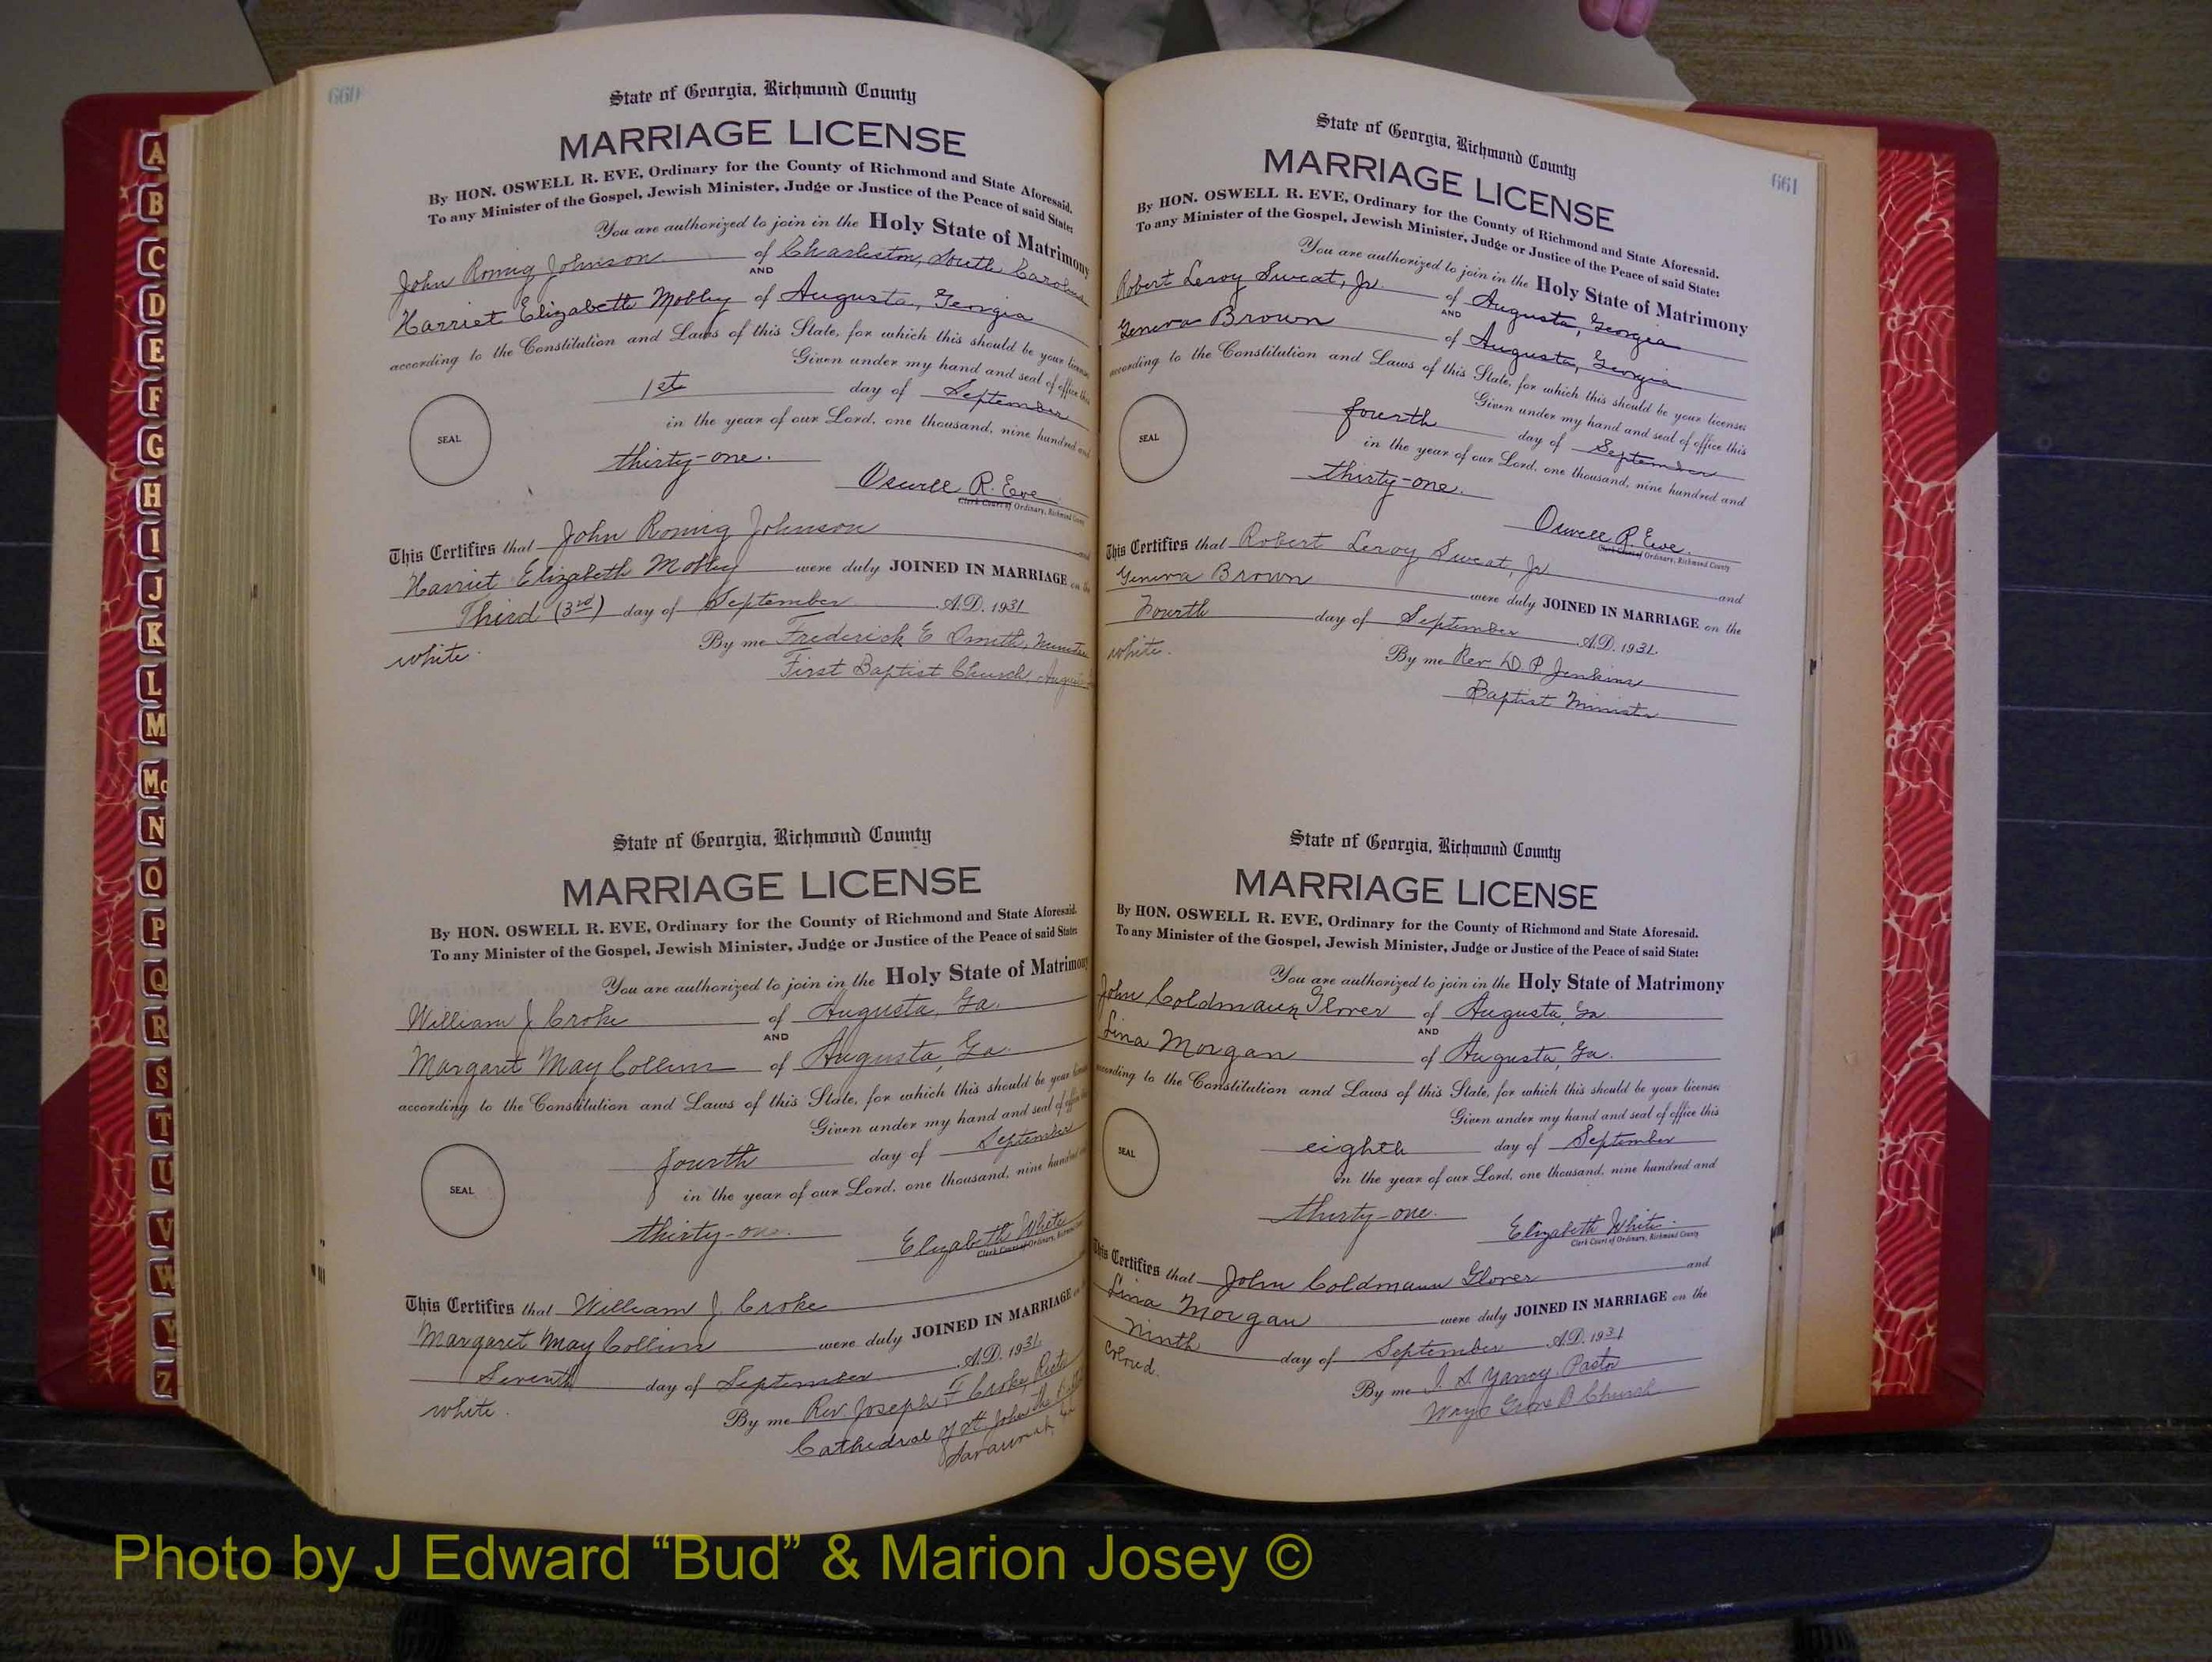 A
B
C
D
E
F
G
H
I
J
K
L
M
Mc
N
O
P
Q
R
S
T
U
V
W
Y
Z
660
State of Georgia, Richmond County
MARRIAGE LICENSE
By HON. OSWELL R. EVE, Ordinary for the County of Richmond and State Aforesaid.
To any Minister of the Gospel, Jewish Minister, Judge or Justice of the Peace of said State:
You are authorized to join in the Holy State of Matrimony
John Romig Johnson of Charleston, South Carolina
AND
Harriet Elizabeth Mobley of Augusta, Georgia
according to the Constitution and Laws of this State, for which this should be your license
Given under my hand and seal of office this
1st day of September
SEAL
in the year of our Lord, one thousand, nine hundred and
thirty-one.
Oswell R. Eve
Clerk Court of Ordinary, Richmond County
This Certifies that John Romig Johnson and
Harriet Elizabeth Mobley were duly JOINED IN MARRIAGE on the
Third (3rd) day of September A.D. 1931
white. By me Frederick E Smith, Minister
First Baptist Church, Augusta
State of Georgia, Richmond County
MARRIAGE LICENSE
By HON. OSWELL R. EVE, Ordinary for the County of Richmond and State Aforesaid.
To any Minister of the Gospel, Jewish Minister, Judge or Justice of the Peace of said State:
You are authorized to join in the Holy State of Matrimony
William J Croke of Augusta, Ga.
AND
Margaret May Collins of Augusta, Ga.
according to the Constitution and Laws of this State, for which this should be your license
Given under my hand and seal of office this
fourth day of September
SEAL
in the year of our Lord, one thousand, nine hundred and
thirty-one.
Elizabeth White
Clerk Court of Ordinary, Richmond
This Certifies that William J. Croke
Margaret May Collins were duly JOINED IN MARRIAGE on
Seventh day of September A.D. 1931
white. By me Rev. Joseph F Croke,
Cathedral of St John the
Savannah, Ga
661
State of Georgia, Richmond County
MARRIAGE LICENSE
By HON. OSWELL R. EVE, Ordinary for the County of Richmond and State Aforesaid.
To any Minister of the Gospel, Jewish Minister, Judge or Justice of the Peace of said State:
You are authorized to join in the Holy State of Matrimony
Robert Leroy Sweat, Jr. of Augusta, Georgia
AND
Geneva Brown of Augusta, Georgia
according to the Constitution and Laws of this State, for which this should be your license:
Given under my hand and seal of office this
fourth day of September
SEAL
in the year of our Lord, one thousand, nine hundred and
thirty-one.
Oswell R. Eve.
Clerk Court of Ordinary, Richmond County
This Certifies that Robert Leroy Sweat, Jr and
Geneva Brown were duly JOINED IN MARRIAGE on the
Fourth day of September A.D. 1931.
white. By me Rev. D. P. Jenkins
Baptist Minister
State of Georgia, Richmond County
MARRIAGE LICENSE
By HON. OSWELL R. EVE, Ordinary for the County of Richmond and State Aforesaid.
To any Minister of the Gospel, Jewish Minister, Judge or Justice of the Peace of said State:
You are authorized to join in the Holy State of Matrimony
John Coldmann Glover of Augusta, Ga
AND
Lina Morgan of Augusta, Ga.
according to the Constitution and Laws of this State, for which this should be your license:
Given under my hand and seal of office this
eighth day of September
SEAL
in the year of our Lord, one thousand, nine hundred and
thirty-one.
Elizabeth White.
Clerk Court of Ordinary, Richmond County
This Certifies that John Coldmann Glover and
Lina Morgan were duly JOINED IN MARRIAGE on the
Ninth day of September A.D. 1931
Colrud. By me J. S. Yancy, Pastor
B Church
Photo by J Edward “Bud” & Marion Josey ©